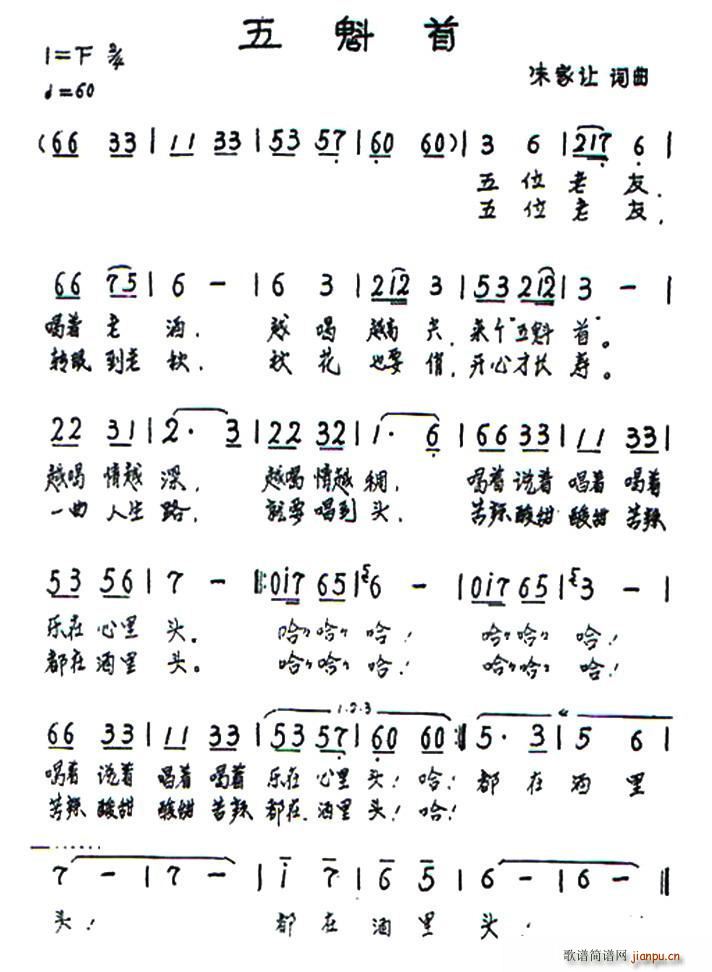 五魁首
1=下 2/4
♩=60
朱家让 词曲
(66 33 | 11 33 | 53 57 | 60 60) | 3 6 | 217 6 |
五位老友,
五位老友,
66 75 | 6 - | 6 3 | 212 3 | 53 212 | 3 - |
喝着老酒, 越喝越高兴,来个"五魁首"。
转眼到老秋, 秋花也要俏,开心才长寿。
22 31 | 2· 3 | 22 32 | 1· 6 | 66 33 | 11 33 |
越喝情越深, 越喝情越稠, 喝着说着唱着喝着
一曲人生路, 就要唱到头, 苦辣酸甜酸甜苦辣
53 56 | 7 - |: 0i7 65 | 6 - | 0i7 65 | 3 - |
乐在心里头。 哈哈哈哈! 哈哈哈哈!
都在酒里头。 哈哈哈哈! 哈哈哈哈!
1·2·3
66 33 | 11 33 | 53 57 | 60 60 :| 5· 3 | 5 6 |
喝着说着唱着喝着乐在心里头!哈! 都在酒里
苦辣酸甜酸甜苦辣都在酒里头!哈!
7 - | 7 - | i 7 | 6 5 | 6 - | 6 - ||
头! 都在酒里头!
歌谱简谱网 jianpu.cn